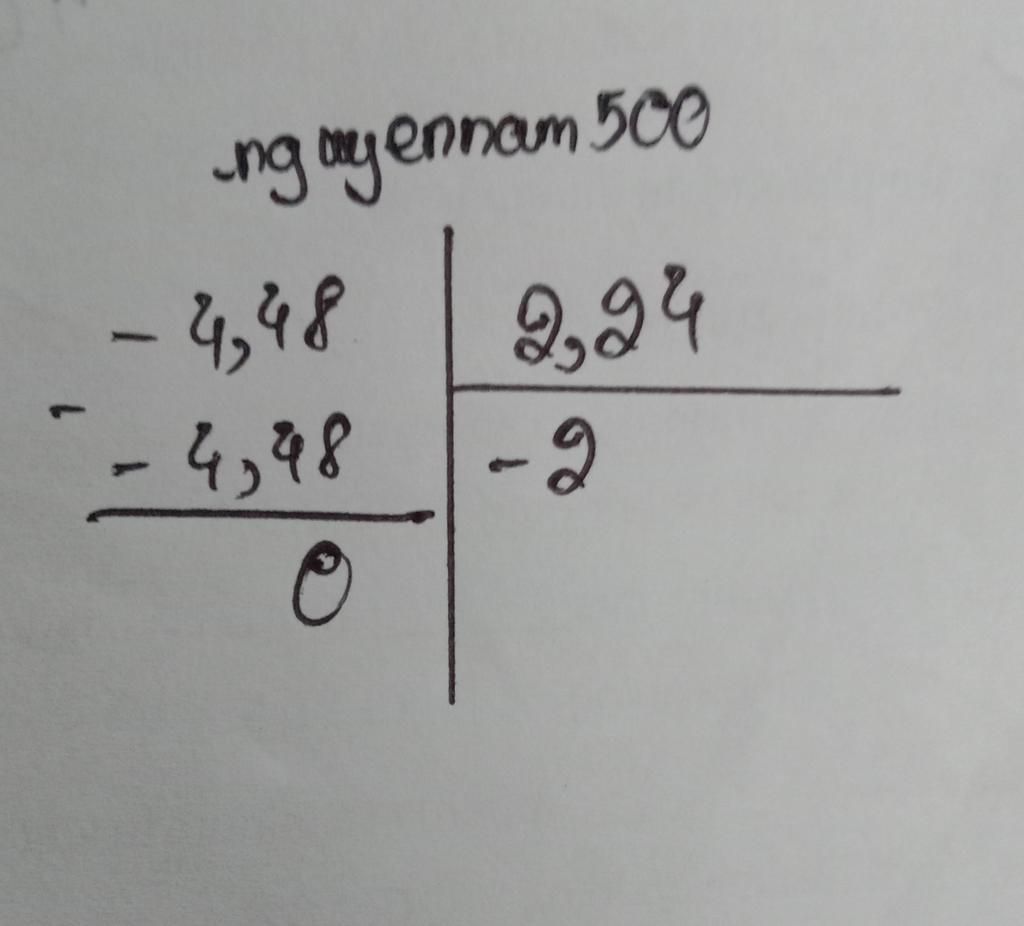 nguyennam500
- 4,48 2,24
-
- 4,48 - 2
0